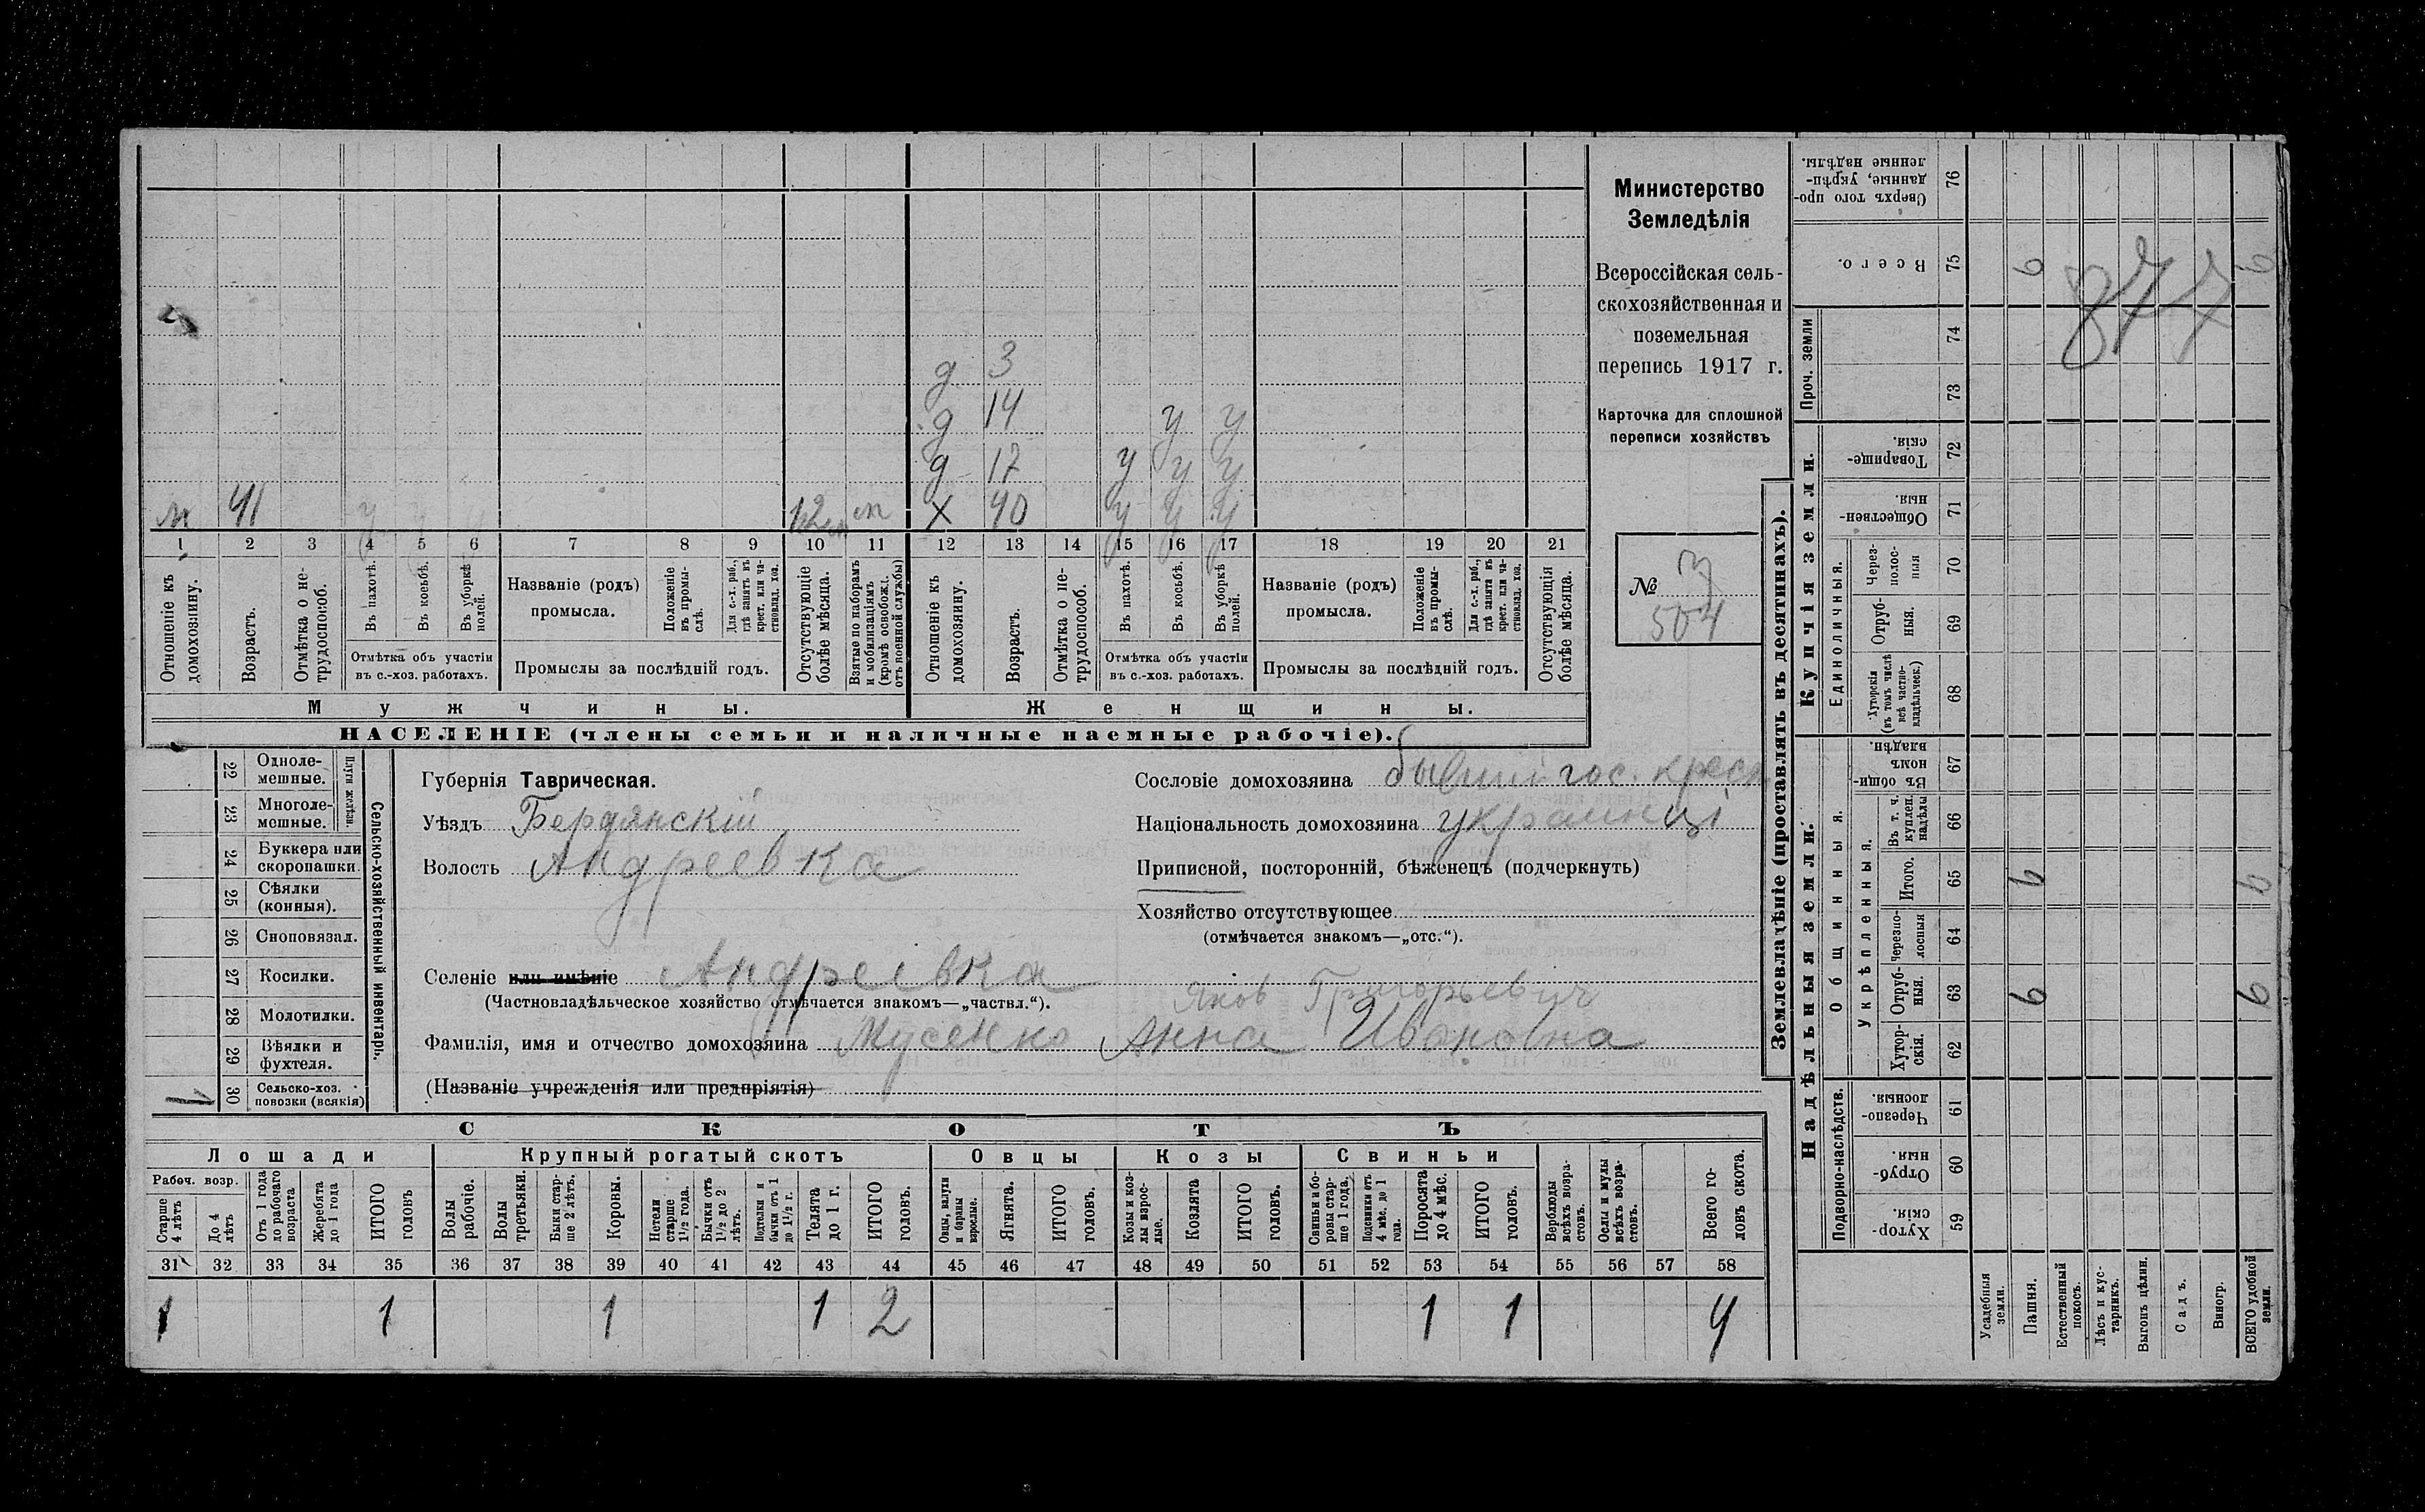 Министерство
Земледѣлія
Всероссійская сель-
скохозяйственная и
поземельная
перепись 1917 г.
Карточка для сплошной
переписи хозяйствъ
№ 3
504
д 3
д 14 у у
д 17 у у у
м 41 у у 12 м х 40 у у у
1 2 3 4 5 6 7 8 9 10 11 12 13 14 15 16 17 18 19 20 21
Отношеніе къ домохозяину.
Возрастъ.
Отмѣтка о не-трудоспособ.
Въ пахотѣ.
Въ косьбѣ.
Въ уборкѣ полей.
Отмѣтка объ участіи
въ с.-хоз. работахъ.
Названіе (родъ)
промысла.
Положеніе въ промы-слѣ.
Для с.-х. раб., гдѣ занятъ въ крест. или ча-стновлад. хоз.
Промыслы за послѣдній годъ.
Отсутствующіе болѣе мѣсяца.
Взятые по наборамъ и мобилизаціямъ (кромѣ освобожд. отъ военной службы)
Отношеніе къ домохозяину.
Возрастъ.
Отмѣтка о не-трудоспособ.
Въ пахотѣ.
Въ косьбѣ.
Въ уборкѣ полей.
Отмѣтка объ участіи
въ с.-хоз. работахъ.
Названіе (родъ)
промысла.
Положеніе въ промы-слѣ.
Для с.-х. раб., гдѣ занята въ крест. или ча-стновлад. хоз.
Промыслы за послѣдній годъ.
Отсутствующія болѣе мѣсяца.
Мужчины. Женщины.
НАСЕЛЕНІЕ (члены семьи и наличные наемные рабочіе).
Сельско-хозяйственный инвентарь.
Плуги желѣзн.
22 Одноле-мешные.
23 Многоле-мешные.
24 Буккера или скоропашки
25 Сѣялки (конныя).
26 Сноповязал.
27 Косилки.
28 Молотилки.
29 Вѣялки и фухтеля.
30 Сельско-хоз. повозки (всякія) 1
Губернія Таврическая.
Уѣздъ Бердянскій
Волость Андреевка
Селеніе или имѣніе Андреевка
(Частновладѣльческое хозяйство отмѣчается знакомъ—„частвл.“).
Сословіе домохозяина бывший гос. крест
Національность домохозяина українці
Приписной, посторонній, бѣженецъ (подчеркнуть)
Хозяйство отсутствующее
(отмѣчается знакомъ—„отс.“).
Яков Григорьевич
Фамилія, имя и отчество домохозяина Мусенко Анна Ивановна
(Названіе учрежденія или предпріятія)
СКОТЪ
Лошади Крупный рогатый скотъ Овцы Козы Свиньи
Рабоч. возр.
Старше 4 лѣтъ
До 4 лѣтъ
Отъ 1 года до рабочаго возраста
Жеребята до 1 года
ИТОГО головъ
Волы рабочіе.
Волы третьяки.
Быки стар-ше 2 лѣтъ.
Коровы.
Нетели старше 1½ года.
Бычки отъ 1½ до 2 лѣтъ.
Подтелки и бычки отъ 1 до 1½ г.
Телята до 1 г.
ИТОГО головъ.
Овцы, валухи и бараны взрослые.
Ягнята.
ИТОГО головъ.
Козы и коз-лы взрос-лые.
Козлята
ИТОГО головъ.
Свиньи и бо-ровы стар-ше 1 года.
Подсвинки отъ 4 мѣс. до 1 года.
Поросята до 4 мѣс.
ИТОГО головъ.
Верблюды всѣхъ возра-стовъ.
Ослы и мулы всѣхъ возра-стовъ.
Всего го-ловъ скота.
31 32 33 34 35 36 37 38 39 40 41 42 43 44 45 46 47 48 49 50 51 52 53 54 55 56 57 58
1 1 1 1 2 1 1 4
Землевладѣніе (проставлять въ десятинахъ).
Надѣльныя земли. Купчія земли. Проч. земли
Подворно-наслѣдств.
Общинныя.
Укрѣпленныя.
Единоличныя.
Хутор-скія. 59
Отруб-ныя. 60
Черезпо-лосныя. 61
Хутор-скія. 62
Отруб-ныя. 63 6 6
Черезпо-лосныя 64
Итого. 65 6 6
Въ т. ч. куплен. надѣлы 66
Въ общи-номъ владѣн. 67
Хуторскія (въ томъ числѣ всѣ частно-владѣльческ.) 68
Отруб-ныя. 69
Через-полос-ныя 70
Обществен-ныя. 71
Товарище-скія. 72
73
74
Всего. 75 6 6
Сверхъ того про-данные, укрѣп-ленные надѣлы. 76
877
Усадебныя земли.
Пашня.
Естественный покосъ.
Лѣсъ и кус-тарникъ.
Выгонъ цѣлин.
Садъ.
Виногр.
ВСЕГО удобной земли.